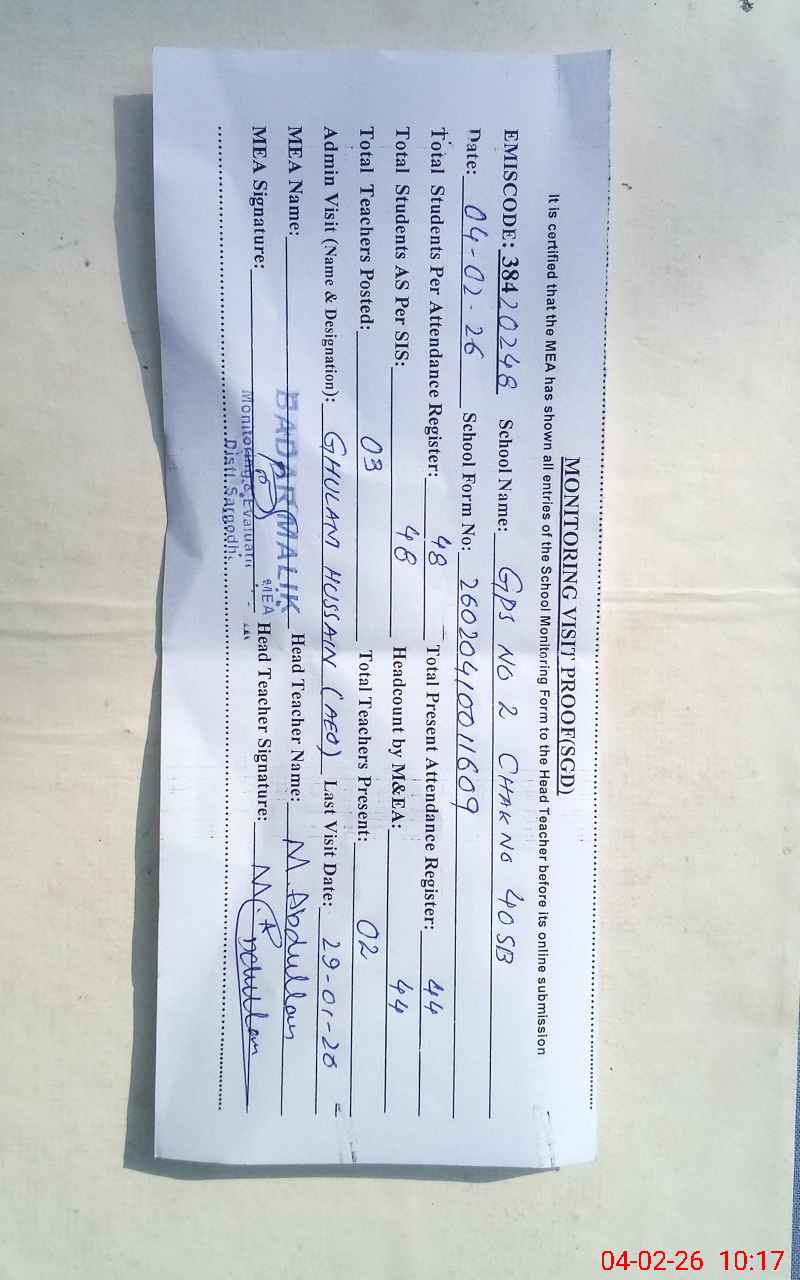 MONITORING VISIT PROOF(SGD)
It is certified that the MEA has shown all entries of the School Monitoring Form to the Head Teacher before its online submission
EMISCODE: 38420248 School Name: GPS NO 2 CHAK NO 40 SB
Date: 04-02-26 School Form No: 26020410011609
Total Students Per Attendance Register: 48 Total Present Attendance Register: 44
Total Students AS Per SIS: 48 Headcount by M&EA: 44
Total Teachers Posted: 03 Total Teachers Present: 02
Admin Visit (Name & Designation): GHULAM HUSSAIN (AEO) Last Visit Date: 29-01-26
MEA Name: BADAR MALIK Head Teacher Name: M. Abdullah
MEA Signature: MEA Head Teacher Signature: M. Abdullah
Monitoring & Evaluati
Distt. Sargodh
04-02-26 10:17